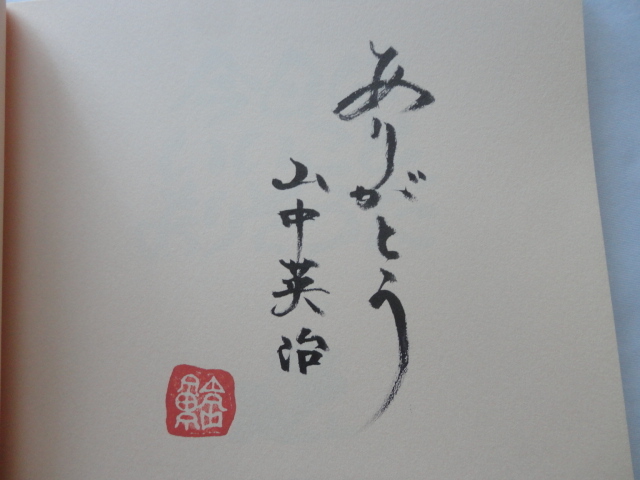 ありがとう
山中英治